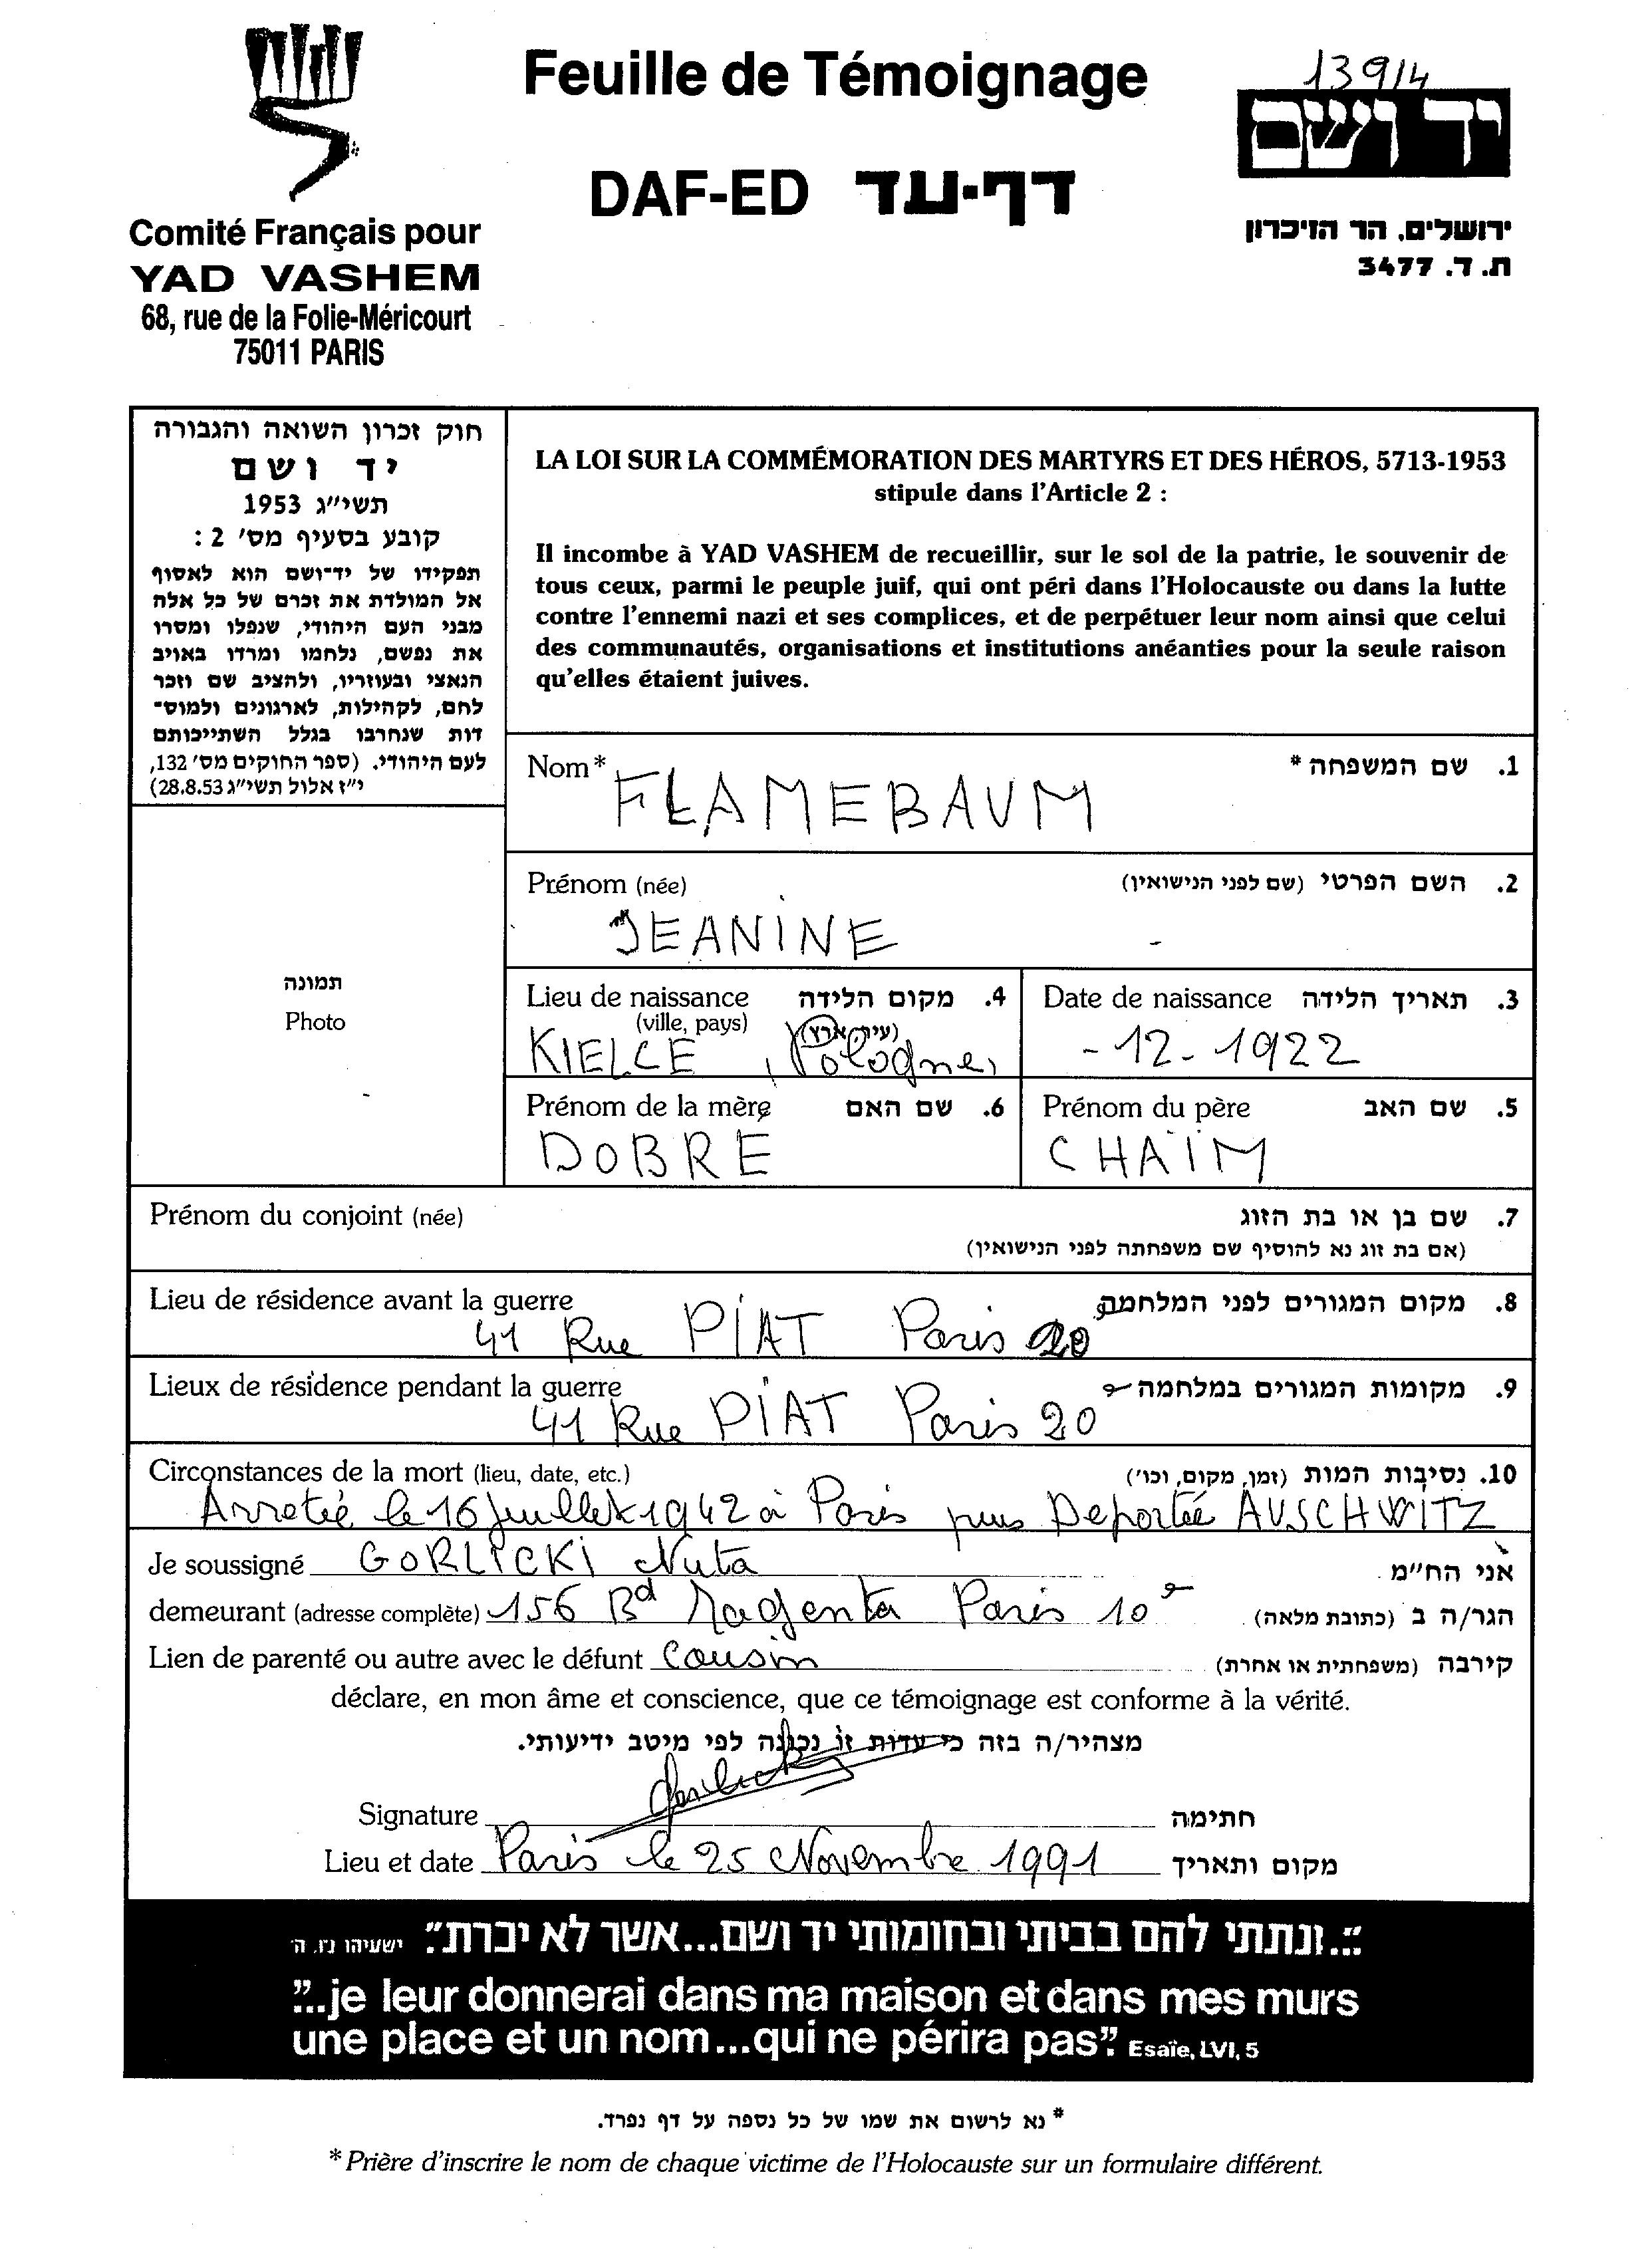 Feuille de Témoignage
DAF-ED דף-עד
13914
יד ושם
ירושלים, הר הזיכרון
ת. ד. 3477
Comité Français pour
YAD VASHEM
68, rue de la Folie-Méricourt
75011 PARIS
חוק זכרון השואה והגבורה
יד ושם
תשי״ג 1953
קובע בסעיף מס׳ 2 :
תפקידו של יד־ושם הוא לאסוף
אל המולדת את זכרם של כל אלה
מבני העם היהודי, שנפלו ומסרו
את נפשם, נלחמו ומרדו באויב
הנאצי ובעוזריו, ולהציב שם וזכר
להם, לקהילות, לארגונים ולמוס־
דות שנחרבו בגלל השתייכותם
לעם היהודי. (ספר החוקים מס׳ 132,
י״ז אלול תשי״ג 28.8.53)
LA LOI SUR LA COMMÉMORATION DES MARTYRS ET DES HÉROS, 5713-1953
stipule dans l'Article 2 :
Il incombe à YAD VASHEM de recueillir, sur le sol de la patrie, le souvenir de
tous ceux, parmi le peuple juif, qui ont péri dans l'Holocauste ou dans la lutte
contre l'ennemi nazi et ses complices, et de perpétuer leur nom ainsi que celui
des communautés, organisations et institutions anéanties pour la seule raison
qu'elles étaient juives.
Nom* 1. שם המשפחה *
FLAMEBAUM
Prénom (née) 2. השם הפרטי (שם לפני הנישואין)
JEANINE -
תמונה
Photo
Lieu de naissance 4. מקום הלידה
(ville, pays) (עיר, ארץ)
KIELCE, (Pologne)
Date de naissance 3. תאריך הלידה
- 12 - 1922
Prénom de la mère 6. שם האם
DOBRE
Prénom du père 5. שם האב
CHAÏM
Prénom du conjoint (née) 7. שם בן או בת הזוג
(אם בת זוג נא להוסיף שם משפחתה לפני הנישואין)
Lieu de résidence avant la guerre 8. מקום המגורים לפני המלחמה
41 Rue PIAT Paris 20e
Lieux de résidence pendant la guerre 9. מקומות המגורים במלחמה
41 Rue PIAT Paris 20e
Circonstances de la mort (lieu, date, etc.) 10. נסיבות המות (זמן, מקום, וכו׳)
Arretée le 16 Juillet 1942 à Paris puis Deportée AUSCHWITZ
Je soussigné GORLICKI Nuta אני הח״מ
demeurant (adresse complète) 156 Bd Magenta Paris 10e הגר/ה ב (כתובת מלאה)
Lien de parenté ou autre avec le défunt Cousin קירבה (משפחתית או אחרת)
déclare, en mon âme et conscience, que ce témoignage est conforme à la vérité.
מצהיר/ה בזה כי עדות זו נכונה לפי מיטב ידיעותי.
Signature Gorlicki חתימה
Lieu et date Paris le 25 Novembre 1991 מקום ותאריך
״...ונתתי להם בביתי ובחומותי יד ושם...אשר לא יכרת״. ישעיהו נו, ה׳
"...je leur donnerai dans ma maison et dans mes murs
une place et un nom...qui ne périra pas". Esaïe, LVI, 5
* נא לרשום את שמו של כל נספה על דף נפרד.
* Prière d'inscrire le nom de chaque victime de l'Holocauste sur un formulaire différent.